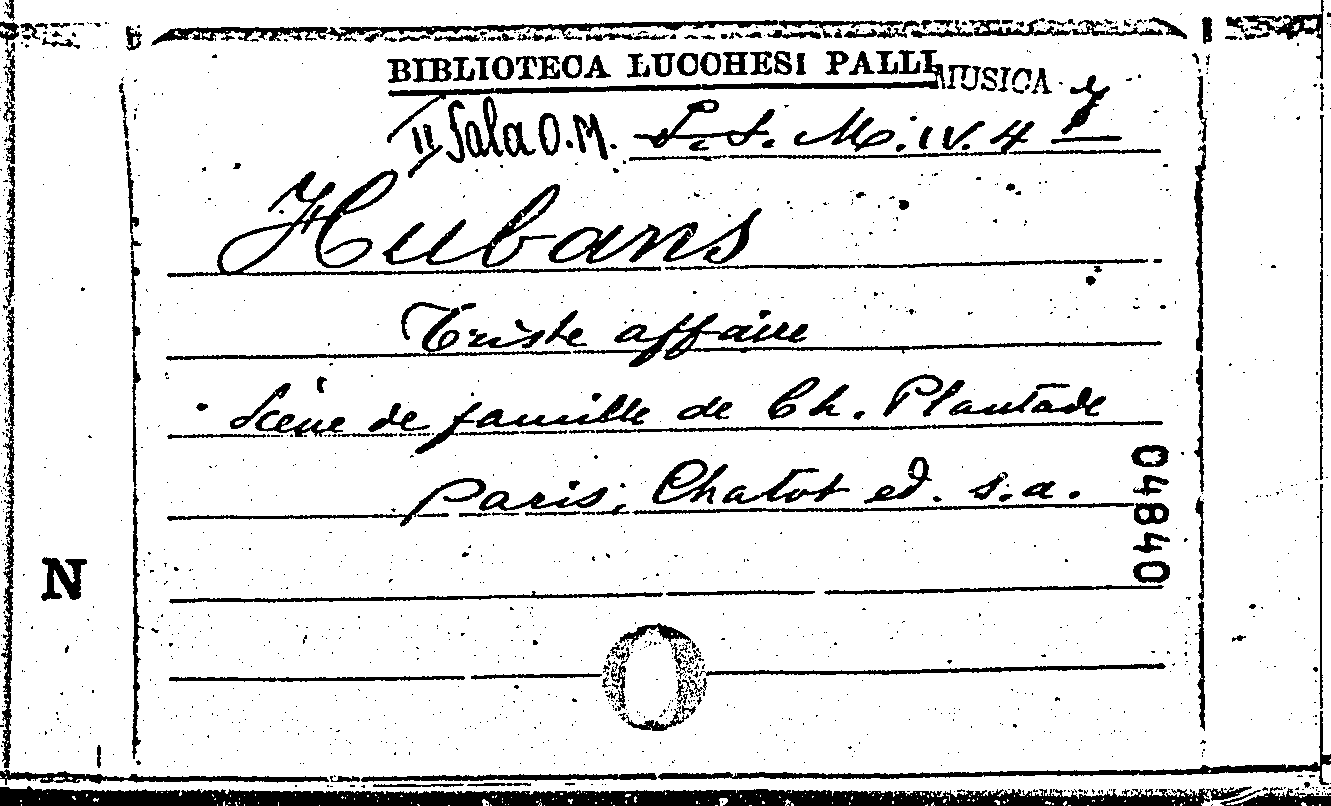 BIBLIOTECA LUCCHESI PALLI MUSICA
II Sala O.M. S.S. M. IV. 4 7
Hubans
Triste affaire
Scène de famille de Ch. Plantade
Paris, Chatot ed. s.a.
04840
N